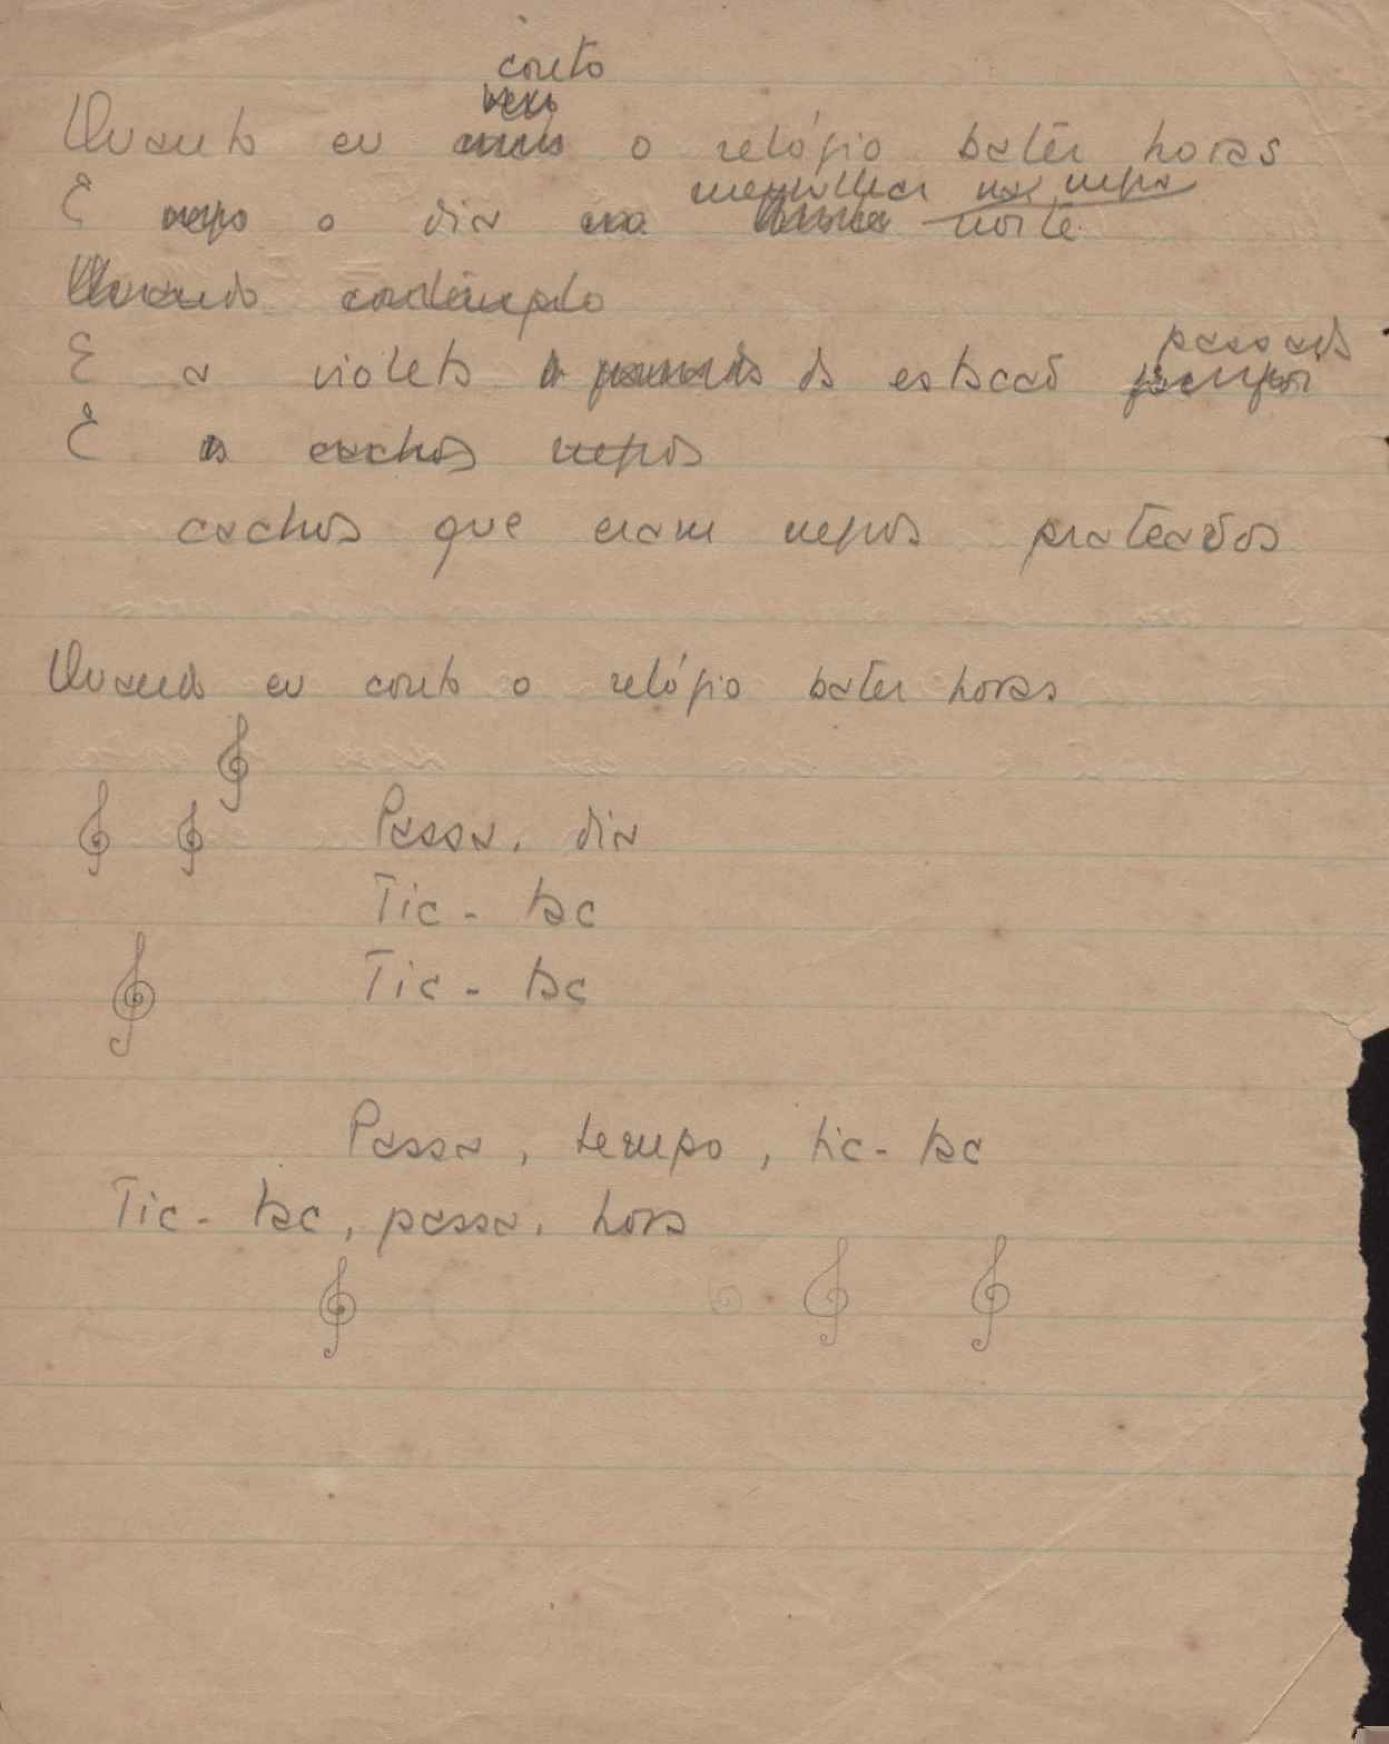 conto
vejo
Quanto eu conto o relógio bater horas
mergulhar na negra
E vejo o dia noite
Quando contemplo
passada
E a violeta da estacão
E os cachos negros
cachos que eram negros prateados
Quando eu conto o relógio bater horas
Passa, dia
Tic - tac
Tic - tac
Passa, tempo, tic - tac
Tic - tac, passa, hora